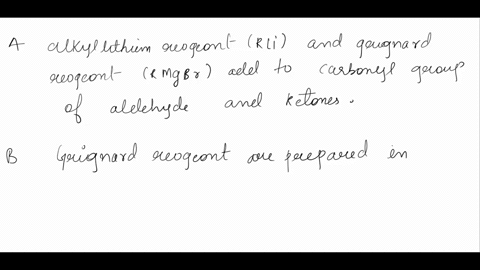 A alkyllithium reogent (RLi) and grugnard
reogent (RMgBr) add to carbonyl group
of aldehyde and ketones.
B Grignard reogent are prepared in